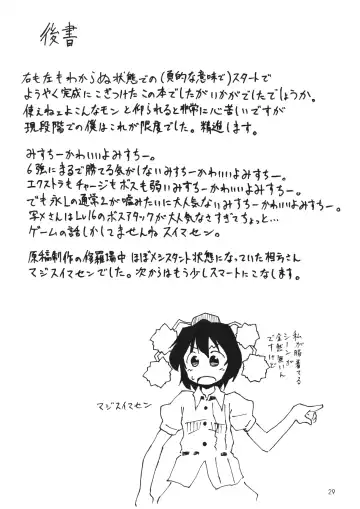 後書
右も左もわからぬ状態での(真的な意味で)スタートで
ようやく完成にこぎつけたこの本でしたがいかがでしたでしょうか。
使えねェよこんなモンと仰られると非常に心苦しいですが
現段階での僕はこれが限度でした。精進します。
みすちーかわいいよみすちー。
6強にまるで勝てる気がしないみすちーかわいいよみすちー。
エクストラもチャージもボスも弱いみすちーかわいいよみすちー。
でも永Lの通常2が嘘みたいに大人気ないみすちーかわいいよみすちー。
写メさんはLv16のボスアタックが大人気なさすぎてちょっと…
ゲームの話しかしてませんねスイマセン。
原稿制作の修羅場中 ほぼメシスタント状態になっていた相方さん
マジスイマセンでした。次からはもう少しスマートにこなします。
私が勝ててる
シーンが
全然無いん
ですけど
マジスイマセン
29